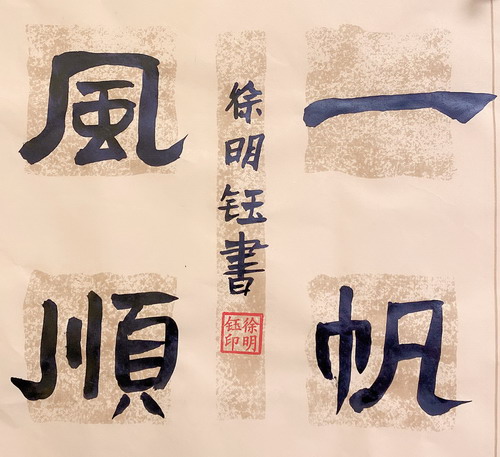 一帆
風順
徐明钰書
徐明
钰印